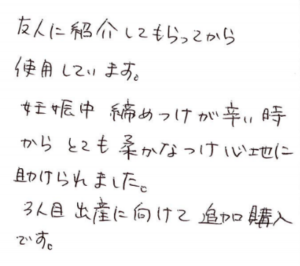 友人に紹介してもらってから
使用しています。
妊娠中 締めつけが辛い時
から とても柔かなつけ心地に
助けられました。
3人目出産に向けて追加購入
です。